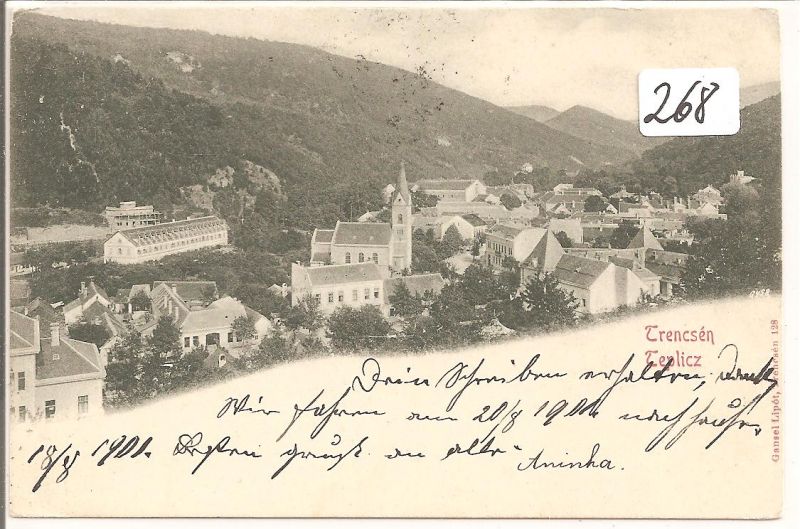 268
Trencsén
Teplicz
Gansel Lipót, Trencsén 128
Dein Schreiben erhalten, Dank,
Wir fahren am 20/8 1901 nach Hause,
18/8 1901. Besten Gruß an alle
Aninka.